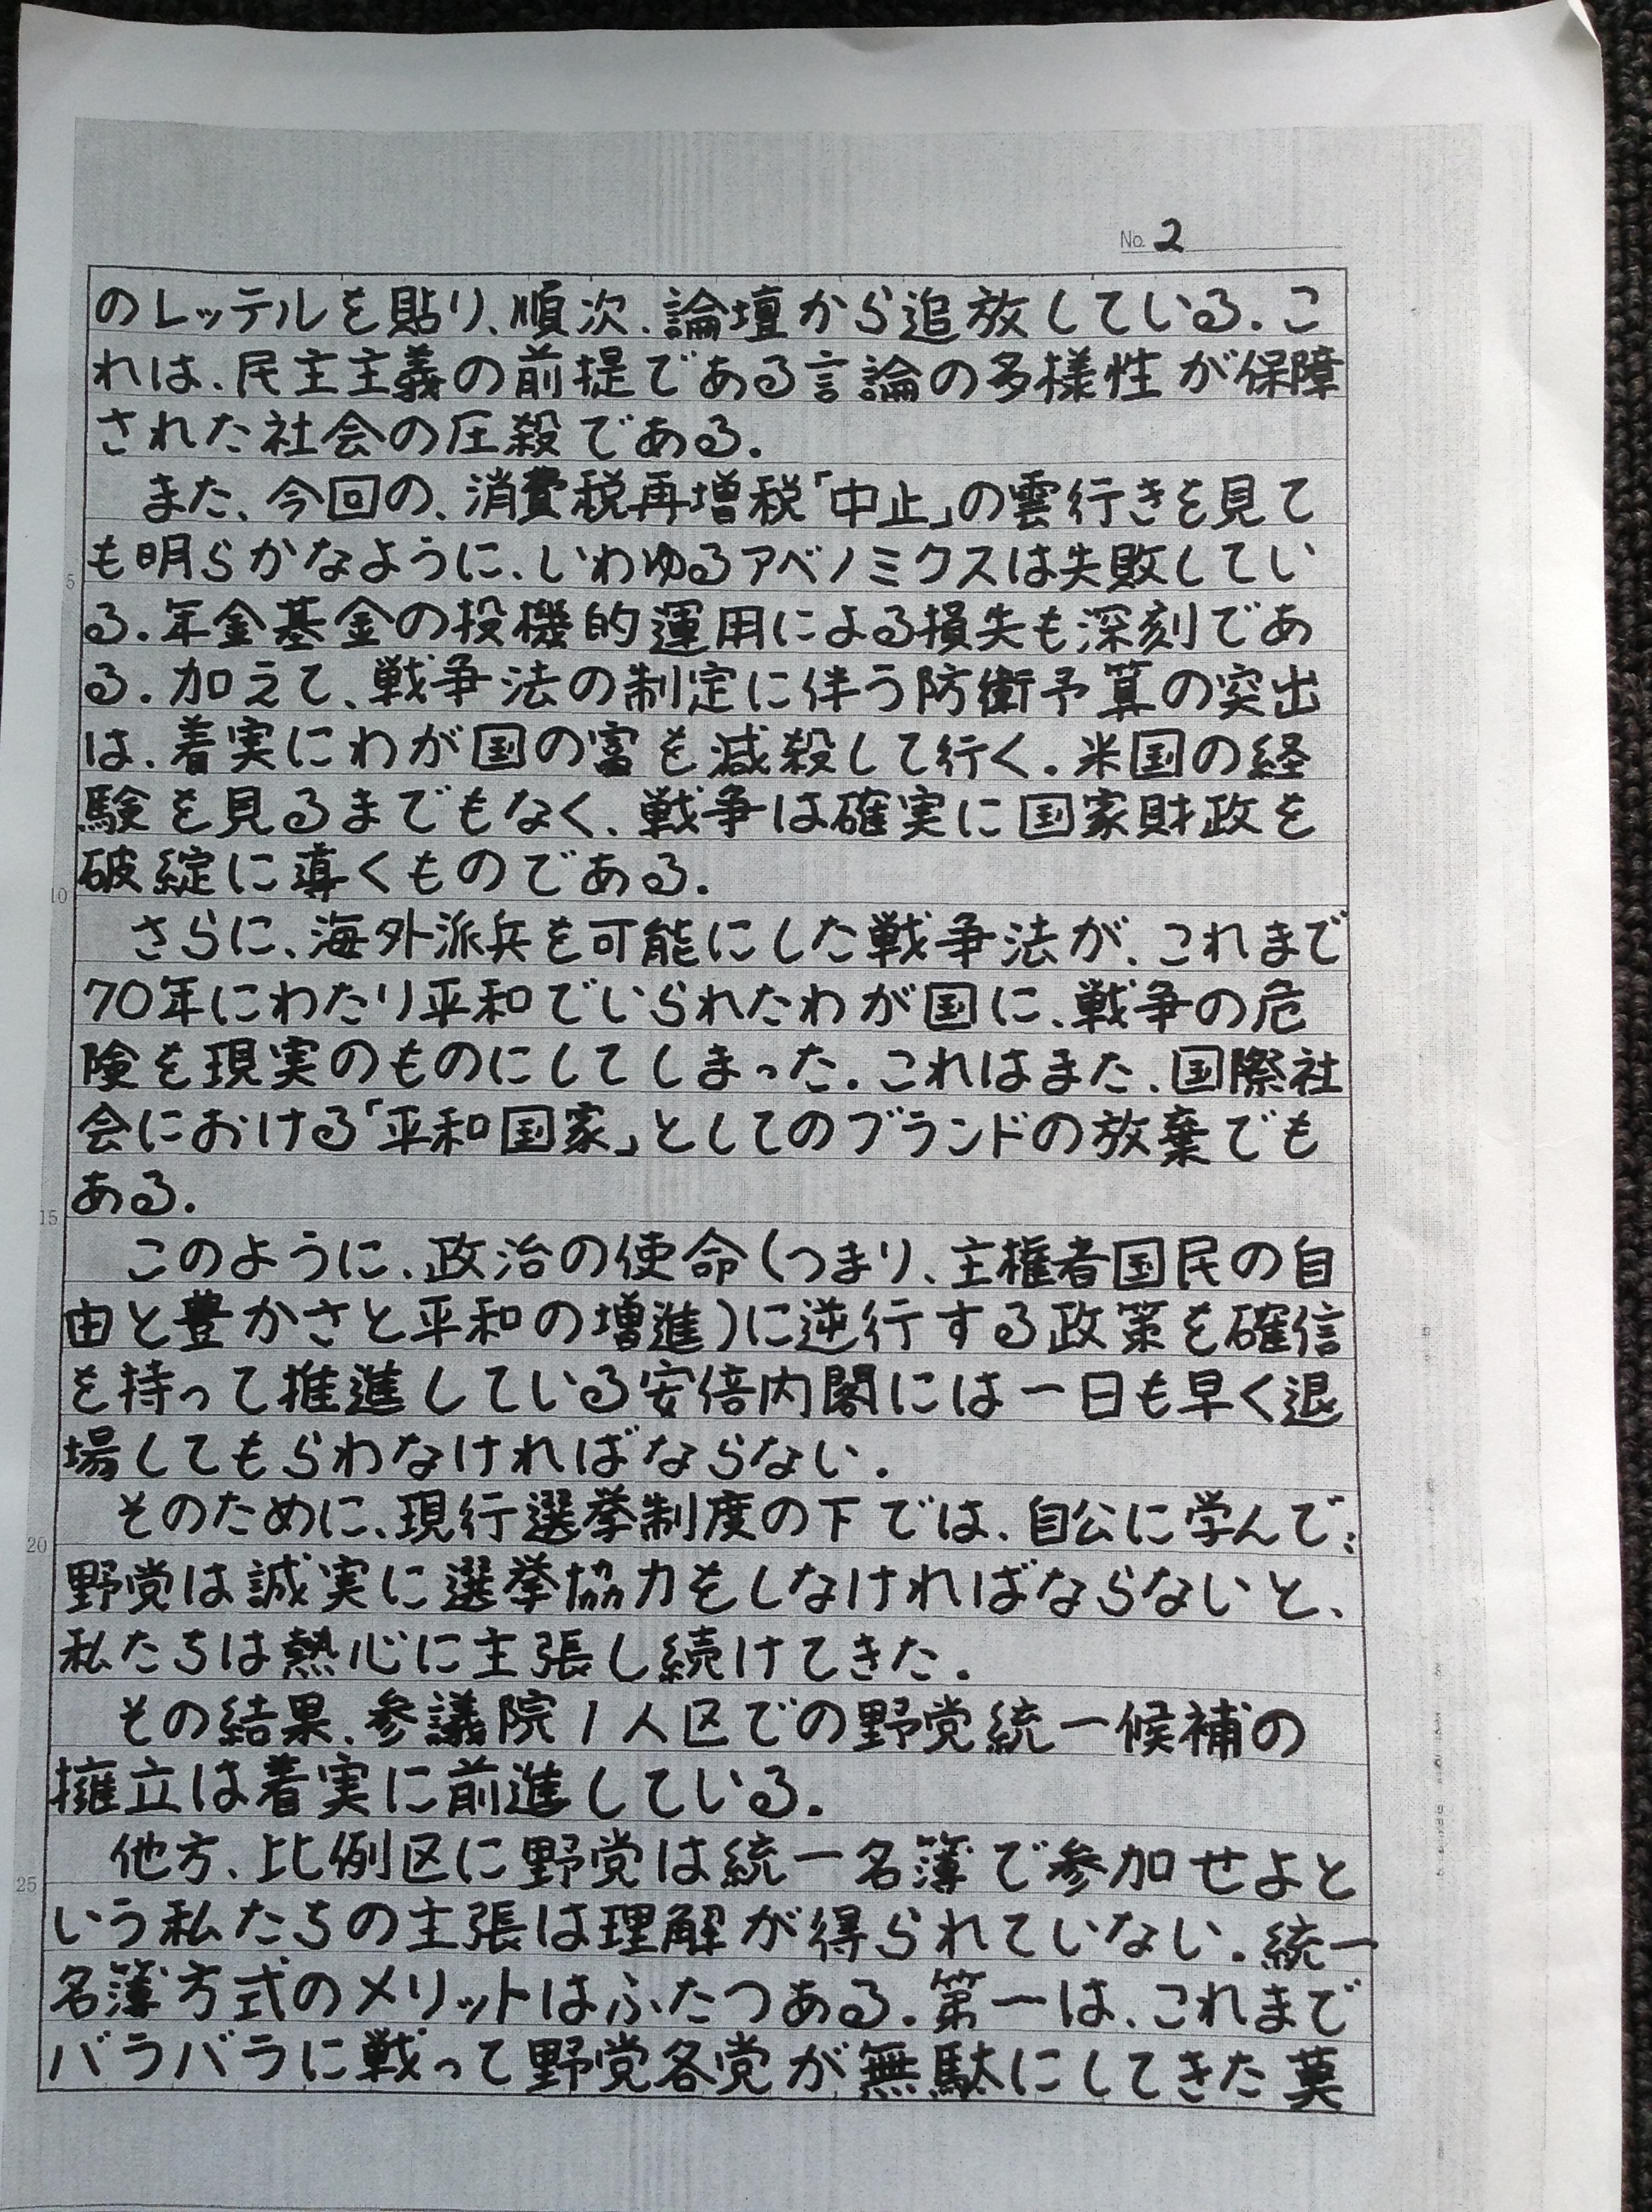 No. 2
のレッテルを貼り、順次、論壇から追放している。こ
れは、民主主義の前提である言論の多様性が保障
された社会の圧殺である。
また、今回の、消費税再増税「中止」の雲行きを見て
も明らかなように、いわゆるアベノミクスは失敗してい
5
る。年金基金の投機的運用による損失も深刻であ
る。加えて、戦争法の制定に伴う防衛予算の突出
は、着実にわが国の富を減殺して行く。米国の経
験を見るまでもなく、戦争は確実に国家財政を
破綻に導くものである。
10
さらに、海外派兵を可能にした戦争法が、これまで
70年にわたり平和でいられたわが国に、戦争の危
険を現実のものにしてしまった。これはまた、国際社
会における「平和国家」としてのブランドの放棄でも
ある。
15
このように、政治の使命(つまり、主権者国民の自
由と豊かさと平和の増進)に逆行する政策を確信
を持って推進している安倍内閣には一日も早く退
場してもらわなければならない。
そのために、現行選挙制度の下では、自公に学んで、
20
野党は誠実に選挙協力をしなければならないと、
私たちは熱心に主張し続けてきた。
その結果、参議院1人区での野党統一候補の
擁立は着実に前進している。
他方、比例区に野党は統一名簿で参加せよと
25
いう私たちの主張は理解が得られていない。統一
名簿方式のメリットはふたつある。第一は、これまで
バラバラに戦って野党各党が無駄にしてきた莫